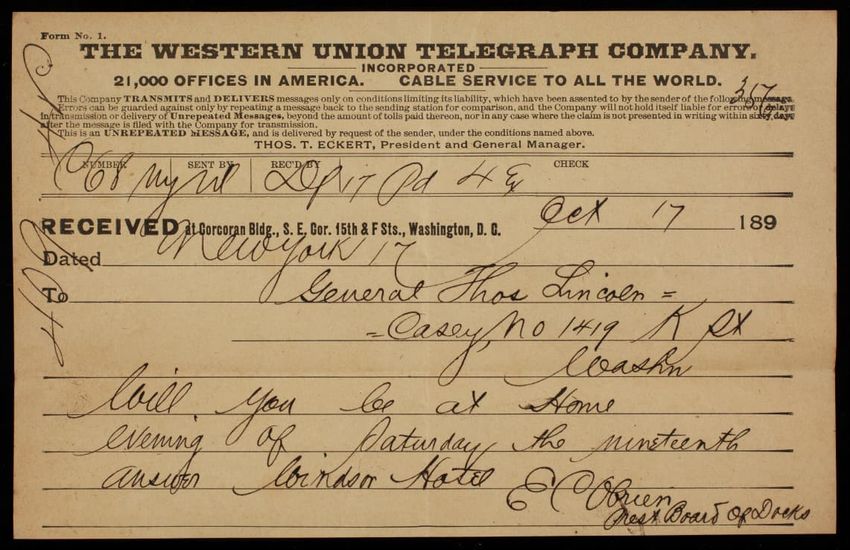 Form No. 1.
THE WESTERN UNION TELEGRAPH COMPANY.
INCORPORATED
21,000 OFFICES IN AMERICA. CABLE SERVICE TO ALL THE WORLD.
This Company TRANSMITS and DELIVERS messages only on conditions limiting its liability, which have been assented to by the sender of the following message.
Errors can be guarded against only by repeating a message back to the sending station for comparison, and the Company will not hold itself liable for errors or delays
in transmission or delivery of Unrepeated Messages, beyond the amount of tolls paid thereon, nor in any case where the claim is not presented in writing within sixty days
after the message is filed with the Company for transmission.
This is an UNREPEATED MESSAGE, and is delivered by request of the sender, under the conditions named above.
THOS. T. ECKERT, President and General Manager.
NUMBER SENT BY REC'D BY CHECK
17 Pd
RECEIVED at Corcoran Bldg., S. E. Cor. 15th & F Sts., Washington, D. C. Oct 17 189
Dated New York 17
To General Thos Lincoln =
= Casey, No 1419 K St
Washn
Will you be at Home
evening of Saturday the nineteenth
answer Windsor Hotel
E C OBrien
Prest Board Of Docks